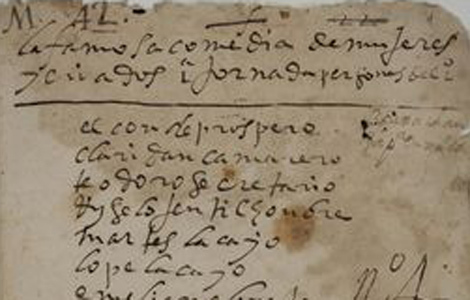 M. A2.
la famosa comedia de mujeres
y criados 1 Jornada personas
el conde prospero
claridan camarero
teodoro secretario
tyselo jentilhonbre
martes lacayo
lope lacayo